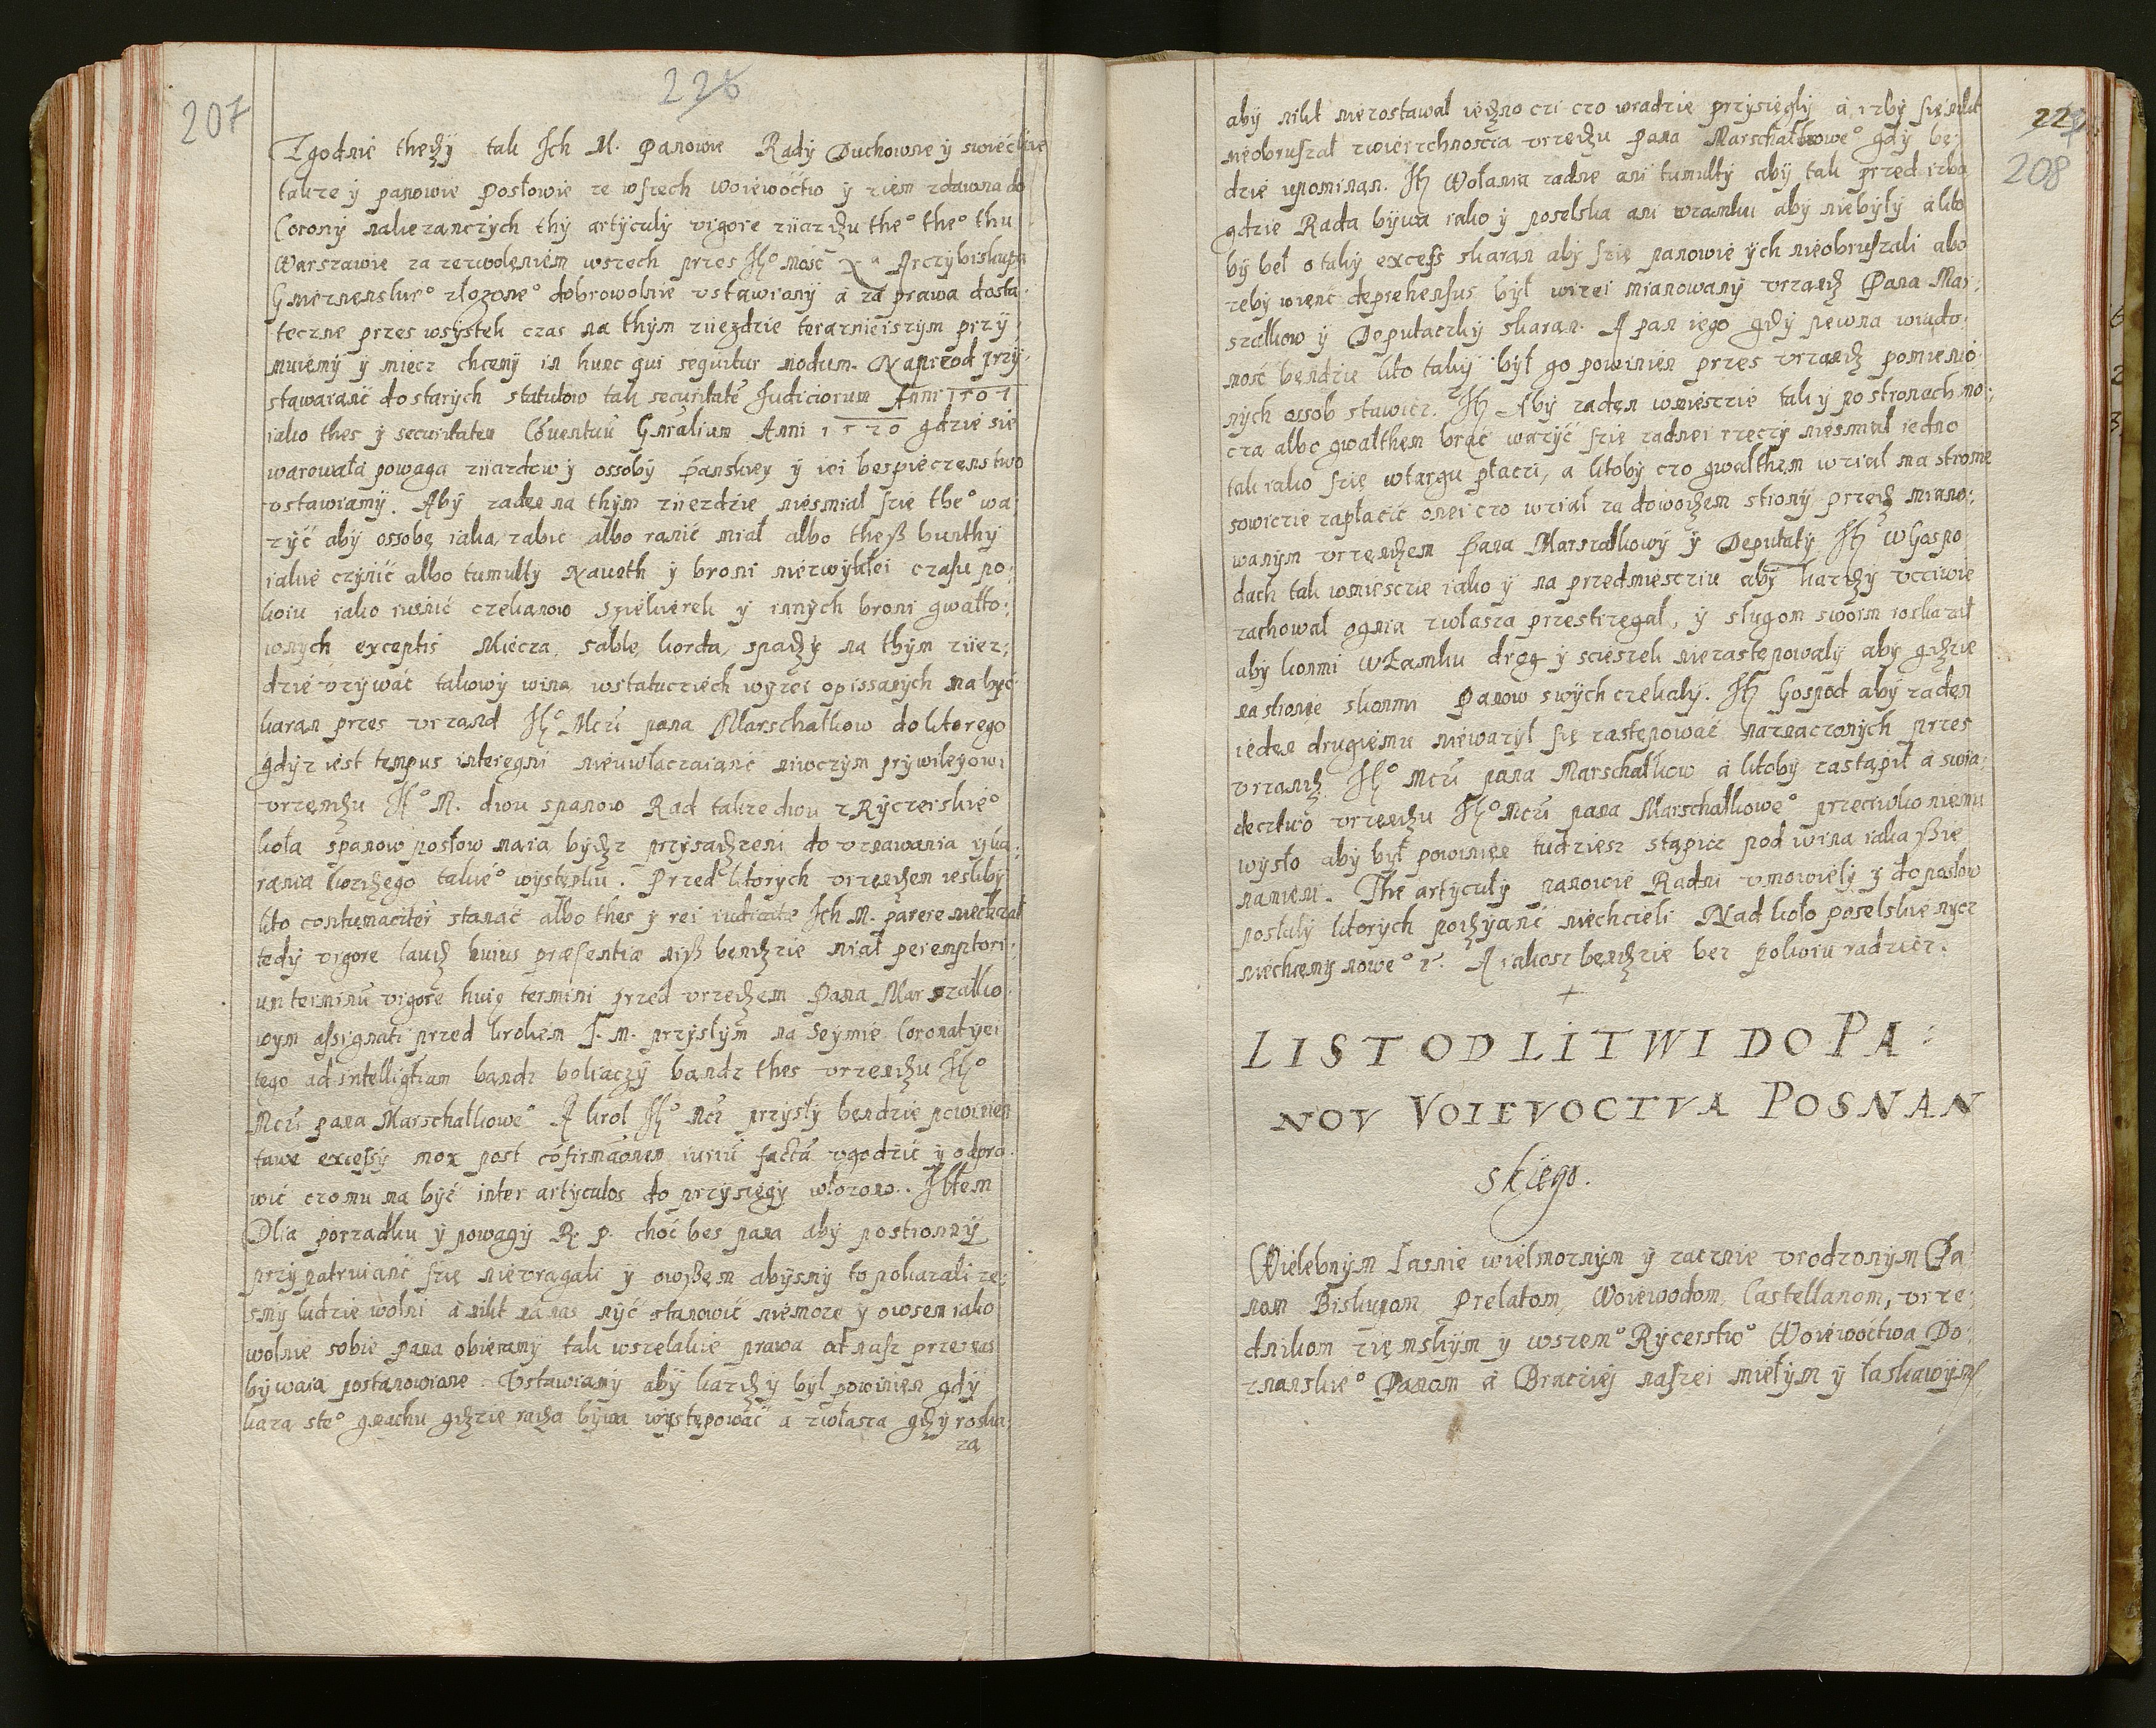 207
226
Zgodnie thedÿ tak Ich M. Panowie Radÿ Duchowne ÿ swieckie
takze ÿ panowie Posłowie ze wszech woiewoctw ÿ ziem zdawna do
Coronÿ nalezanczÿch thÿ artÿculÿ vigore ziiazdu the° the° thu
Warszawie za zezwoleniem wszech przes Je° mosć X a Arczÿbiskupa
Gnieznenskie° złozone° dobrowolnie vstawionÿ a za prawa dosta:
teczne przes wsÿstek czas na thÿm ziiezdzie terazniejszÿm przÿ:
muiemÿ ÿ miecz chcemÿ in hunc qui sequitur modum. Naprzod przÿ:
stawaianć do starÿch statutow tak securitate Judiciorum Anni 1507
iako thes ÿ securitatem Cōuentuū Gnralium Anni 1520 gdzie sie
warowała powaga ziiazdow ÿ ossobÿ panskieÿ ÿ iei bespieczenstwo
vstawiamÿ. Abÿ zaden na thÿm ziiezdzie niesmiał szie the° wa
zÿć abÿ ossobę iaka, zabic albo ranić miał albo theß bunthÿ
iakie czÿnić albo tumultÿ Naueth ÿ broni niezwÿkłei czasu po:
koiu iako rusnic czekanow Sziekierek ÿ innÿch broni gwałto:
wnÿch exceptis Miecza, sable, korda, spadÿ na thÿm ziiez:
dzie vzÿwać takowÿ wina wstatucziech wÿzei opissanÿch ma bÿć
karan przes vrzand Je° Mczi pana Marschałkow do ktorego
gdÿz iest tempus interegni nieuwłaczaianć niwczÿm prÿwileÿowi
vrzendu Je° M. dwu spanow Rad takze dwu z Rÿczerskie°
koła spanow posłow maia bÿdz przÿsadzeni do vznawania ÿ ka:
rania kazdego takie° wÿstępku. Przed ktorÿch vrzendem iesliby
kto contumaciter stanać albo thes ÿ rei iudicate Ich M. parere niechciał
tedÿ vigore laud huius præsentiæ niß bendzie miał peremptori:
um terminū vigore huig termini przed vrzedem Pana Marszałko:
wÿm assignati przed krolem J. M. przÿslÿm na Seÿmie Coronatÿei
tego ad intelligtiam bandz boliaczÿ bandz thes vrzendu Je°
Mczi pana Marschałkowe° A krol Je° Mcz przÿslÿ bendzie powinien
tawe excessÿ mox post cōfirmāonem iuriū factā vgodzić ÿ odpra:
wić czomu ma bÿć inter artÿculos do przÿsięgÿ włozono. Jttem
Dlia porzadku ÿ powagÿ R. P. choć bes pana abÿ postronnÿ
przÿpatruianć szię nievragali ÿ owßem abÿsmÿ to pokazali ze:
smÿ ludzie wolni a nikt na nas nÿć stanowić niemoze ÿ owsem iako
wolnie sobie pana obieramÿ tak wszelakie prawa od nasz przes nas
bÿwaia postanowione. Vstawiamÿ abÿ kazdÿ bÿl powinien gdÿ
kaza ste° gmachu gdzie rada bÿwa wÿstępować a zwłasza gdÿ roska:
za
227
208
abÿ nikt niezostawał iedno czi czo wradzie przÿsięglÿ a izbÿ się nikt
nieobruszał zwierzchnoscia vrzedu Pana Marschałkowe° gdÿ be:
dzie upominan. Jtz Wołania zadne ani tumultÿ abÿ tak przed izba
gdzie Rada bÿwa iako ÿ poselska ani wzamku abÿ niebÿłÿ a kto
bÿ beł o takÿ excess skaran abÿ szię panowie ÿch nieobruszali abo
zebÿ wienć deprehensus bÿł wizei mianowanÿ vrzand Pana Mar:
szałkow ÿ Deputaczkÿ skaran. A pan iego gdÿ pewna wiado:
mosć bendzie kto takÿ bÿł go powinien przes vrzand pomienio:
nÿch ossob stawicz. Jtz Abÿ zaden wmiescie tak ÿ po stronach mo:
cza albo gwałthem brać wazÿć szię zadnei rzeczÿ niesmiał iedno
tak iako szię wtargu płaczi, a ktobÿ czo gwałthem wział ma stronie
sowiczie zapłacić onei czo wział za dowodem stronÿ przed miano:
wanÿm vrzendem Pana Marszałkowÿ ÿ Deputatÿ Jtz W Gospo
dach tak wmiescie iako ÿ na przedmiesciu abÿ kazdÿ vcciwie
zachował ognia zwłasza przestrzegał, ÿ sługom swoim roskazał
abÿ konmi w Zamku drog ÿ sciezek niezastepowalÿ abÿ gdzie
na stronie skonmi Panow swÿch czekalÿ. Jtz Gospod abÿ zaden
ieden drugiemu niewazÿl się zastepować naznaczonÿch przes
vrzand Je° Mczi pana Marschałkow a ktobÿ zastąpił a swia:
dectwo vrzendu Je° Mczi pana Marschałkowe° przeciwko niemu
wÿsło abÿ bÿł powinien tudziesz stąpicz pod wina iaka ssie
namieni. The artÿcułÿ panowie Radni vmowielÿ ÿ do posłow
posłalÿ ktorÿch podÿanć niechcieli Nad koło poselskie nÿcz
niechcemÿ nowe° z. A iakosz bendzie bez pokoiu radzicz.
+
LIST OD LITWI DO PA:
NOV VOIEVOCTVA POSNAN
skiego.
Wielebnÿm Jasnie wielmoznÿm ÿ zacznie vrodzonÿm Pa
nom Biskupom, Prelatom, Woiewodom, Castellanom, vrze:
dnikom zięmskÿm y wszem° Rÿcerstw° Woiewoctwa Po:
znanskie° Panom a Braciej naszei miełÿm ÿ łaskawÿm